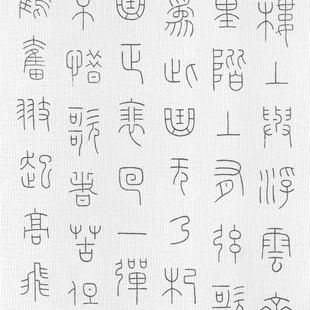 樓上與浮雲齊
重階上有弦歌
為此曲无乃杞
曲正裵回一彈
不惜歌者苦但
奮翅起高飛